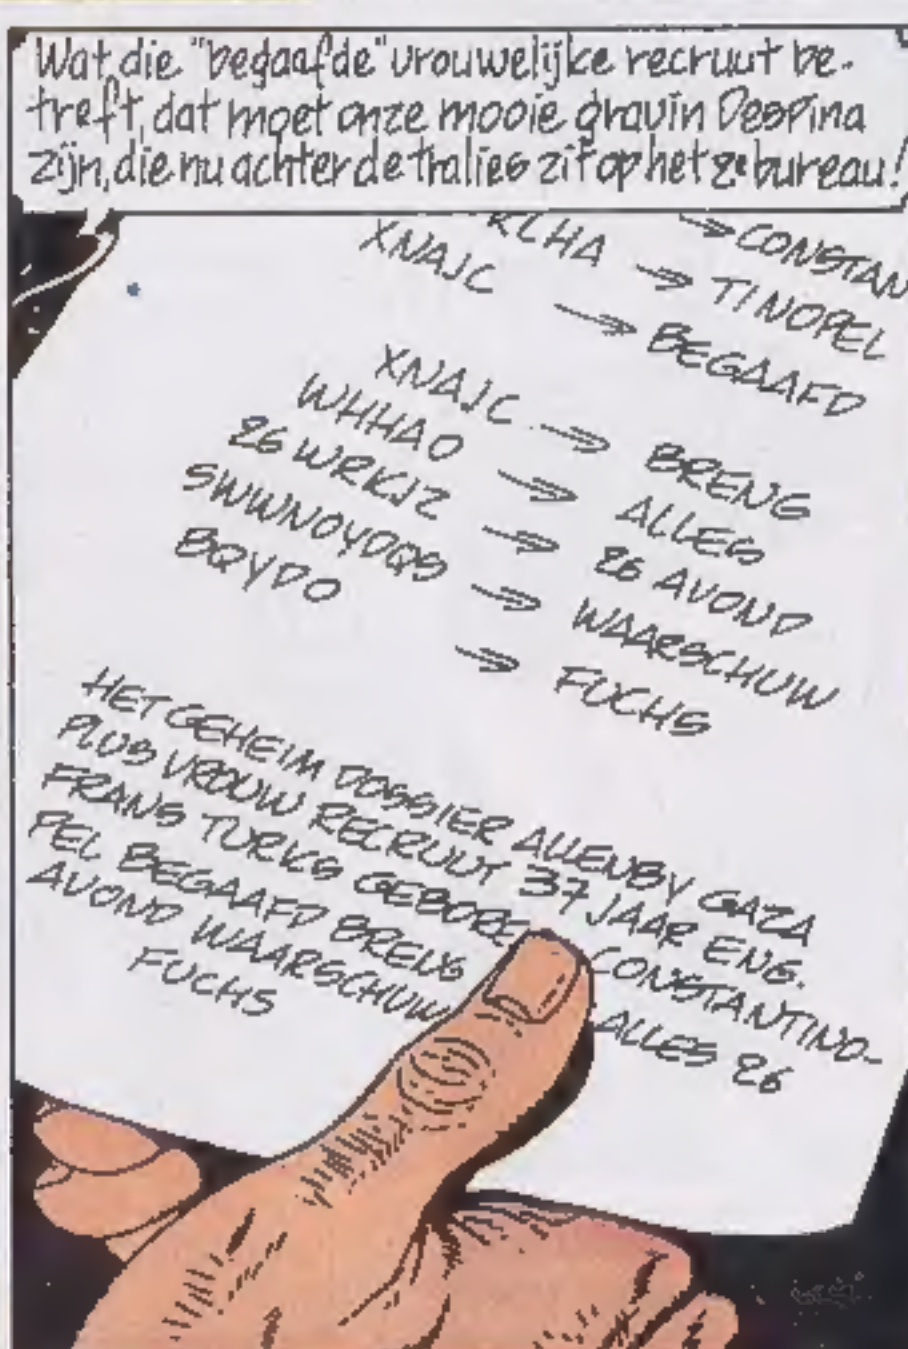 Wat die "begaafde" vrouwelijke recruut be-
treft, dat moet onze mooie gravin Despina
zijn, die nu achter de tralies zit op het 2e bureau!
→ CONSTAN
RLHA → TINOPEL
XNAJC → BEGAAFD
XNAJC → BRENG
WHHAO → ALLES
26 WRKJZ → 26 AVOND
SWWNOYDQS → WAARSCHUW
BQYDO → FUCHS
HET GEHEIM DOSSIER ALLENBY GAZA
PLUS VROUW RECRUUT 37 JAAR ENG.
FRANS TURKS GEBORE CONSTANTINO-
PEL BEGAAFD BRENG ALLES 26
AVOND WAARSCHUW
FUCHS